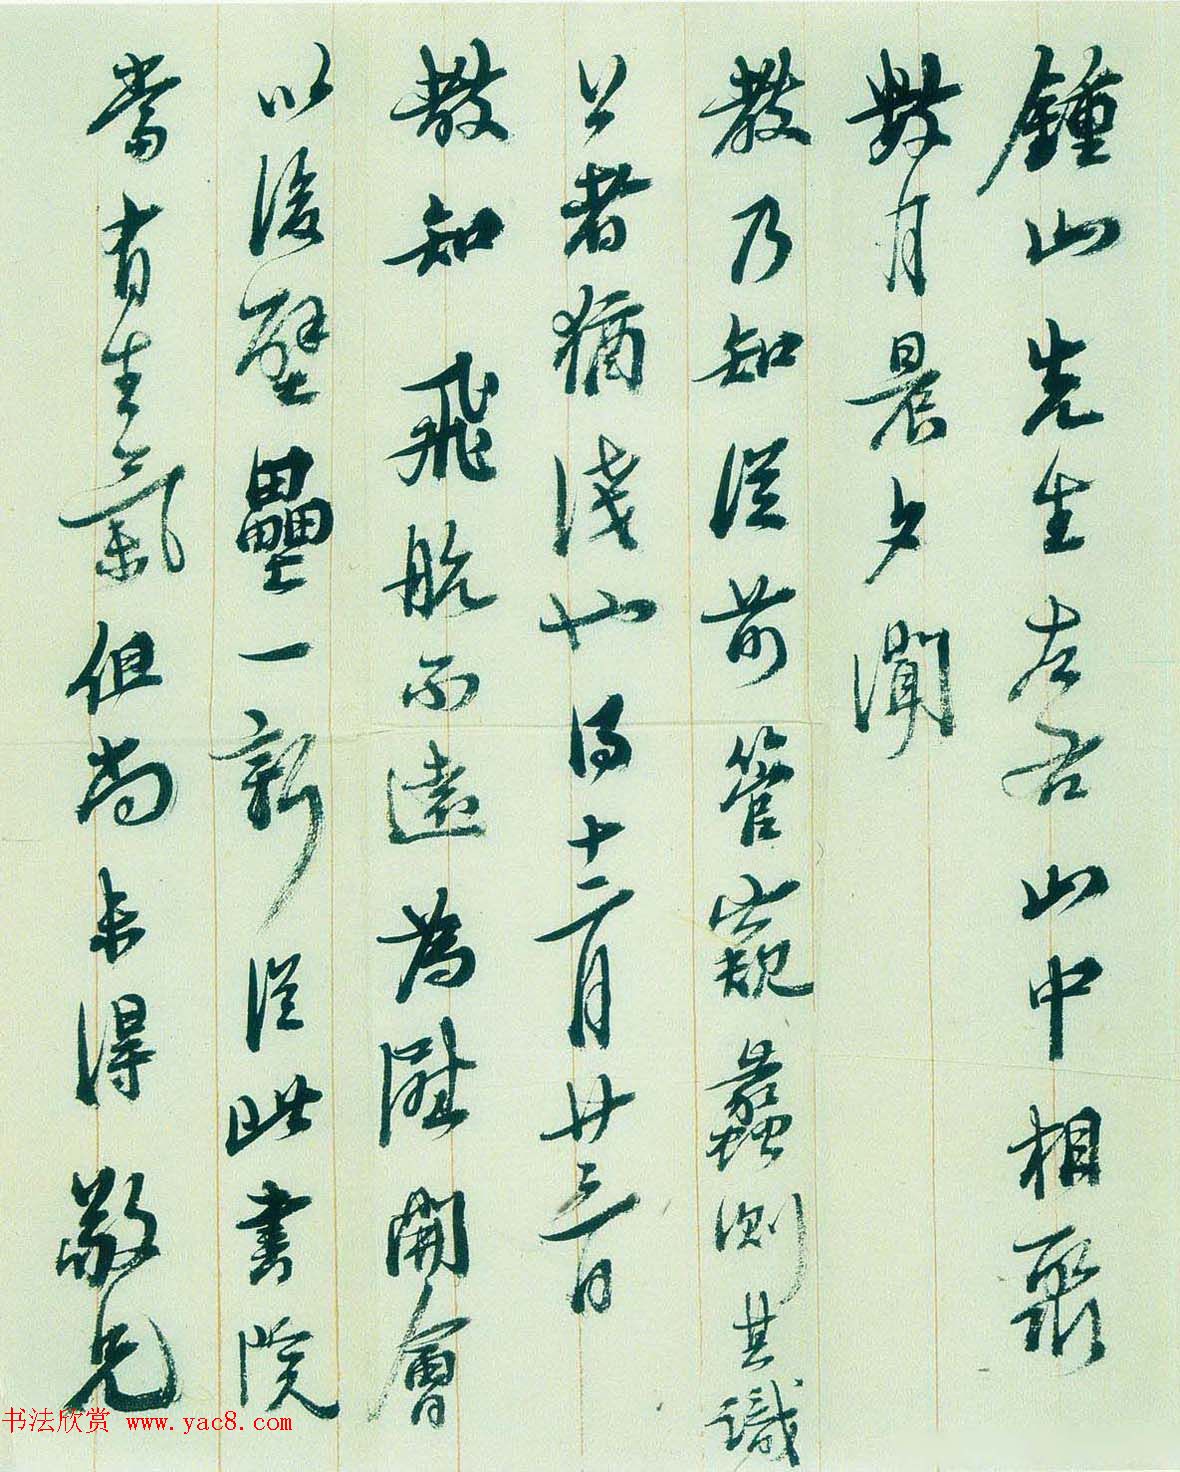 鍾山先生左右山中相聚
數月晨夕聞
教乃知從前管窺蠡測其識
公者猶淺也得十二月廿三日
教知飛航不遠為慰開會
以後壁壘一新從此書院
當有生氣但尚未得敬兄
书法欣赏 www.yac8.com